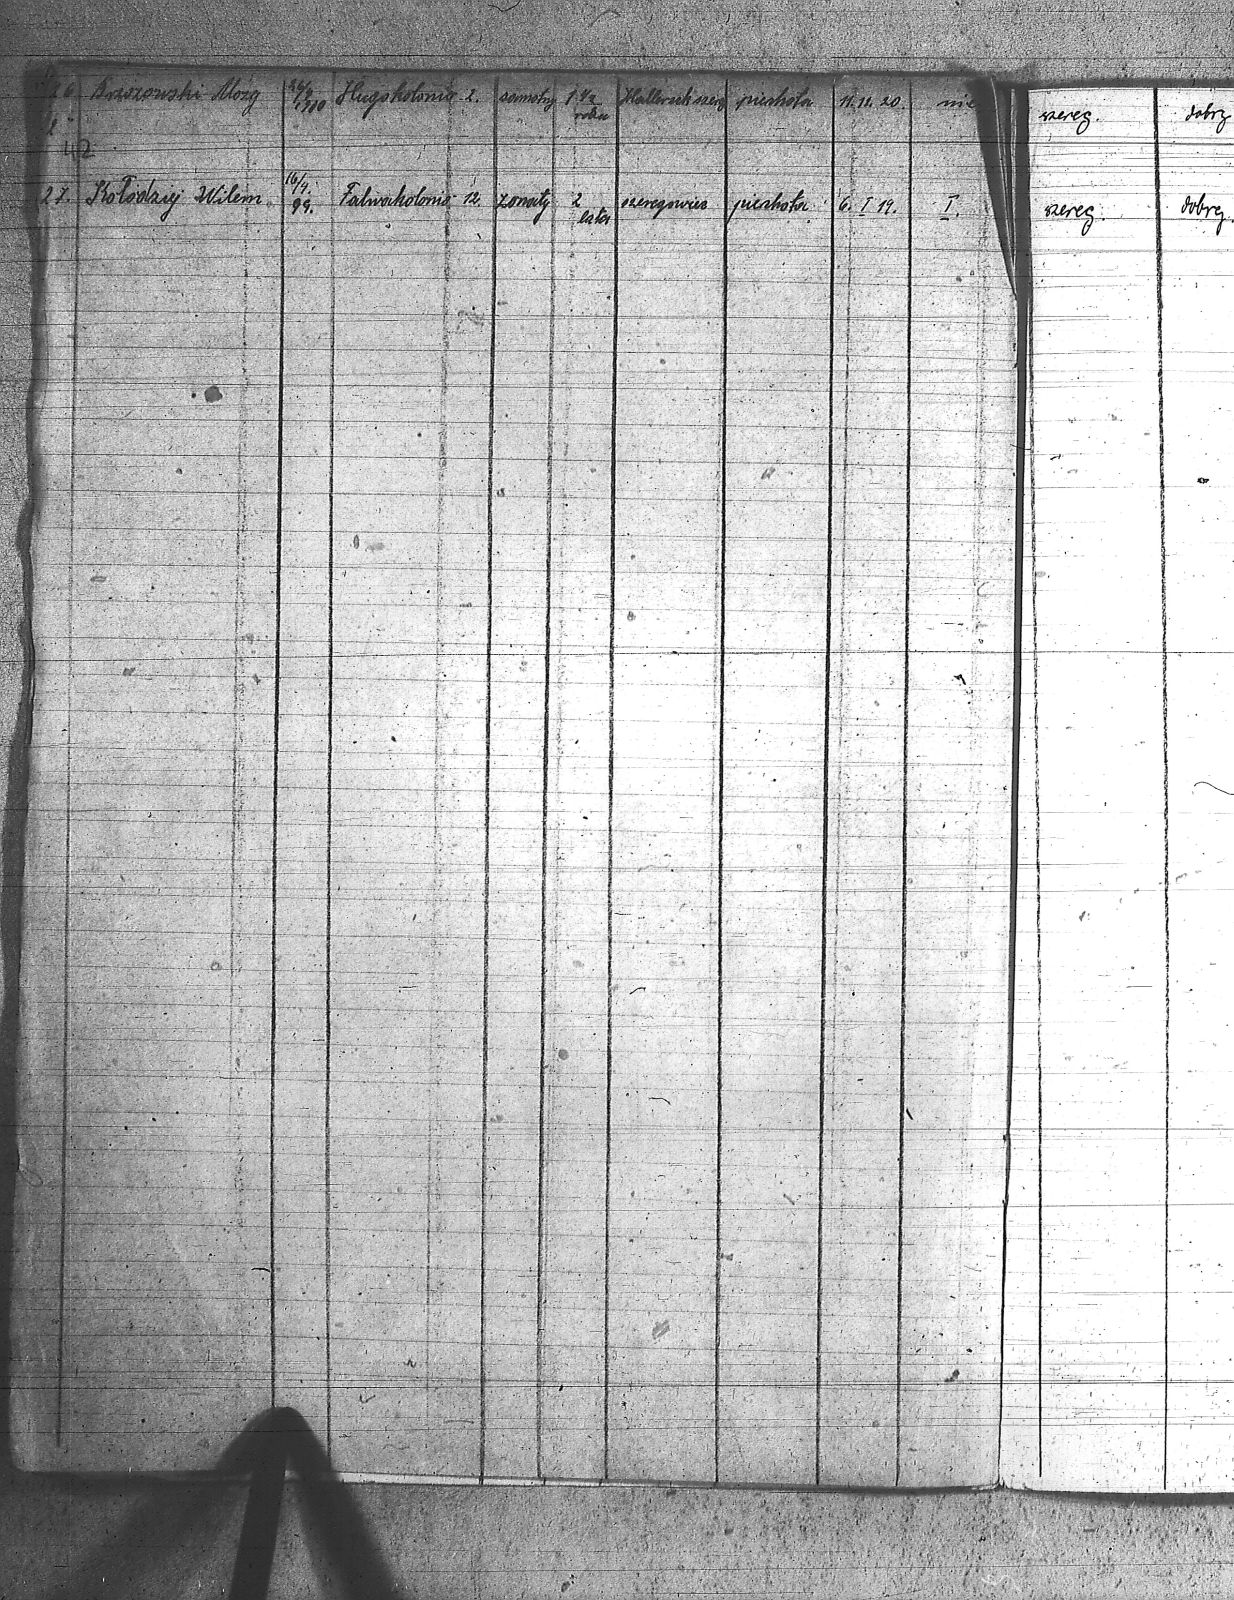 26 Brzozowski Alozy 2. samotny 1 1/2 roku Hallerczk szereg piechota 11. 12. 20. nie szereg. dobry
42
27. Kołodziej Wilem 16/4. 99. Falwakolonie 12. zonaty 2 lata szeregowiec piechota 6. I 19. I. szereg. dobry.